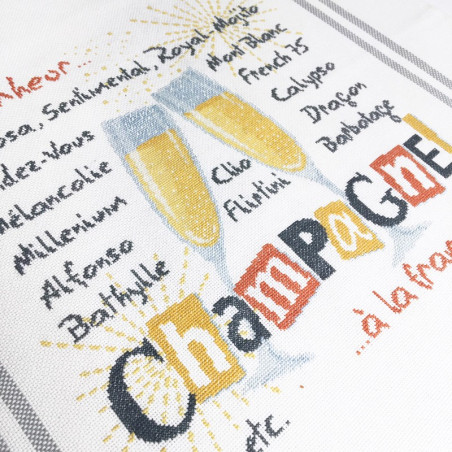 nheur...
osa, Sentimental, Royal, Mojito
Mont Blanc
French 75
Calypso
Dragon
Barbotage
dez-vous
Mélancolie
Millenium
Alfonso
Bathylle
Clio
Flirtini
ChamPagne!
...à la fran
etc.